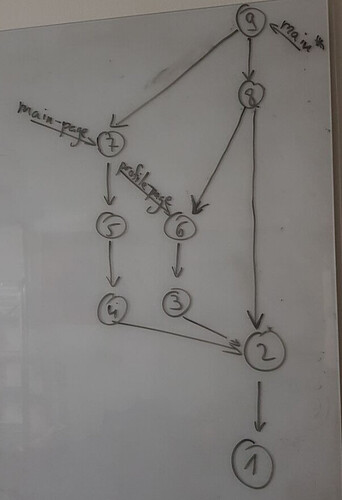 9
main
8
main-page
7
profile page
5
6
4
3
2
1